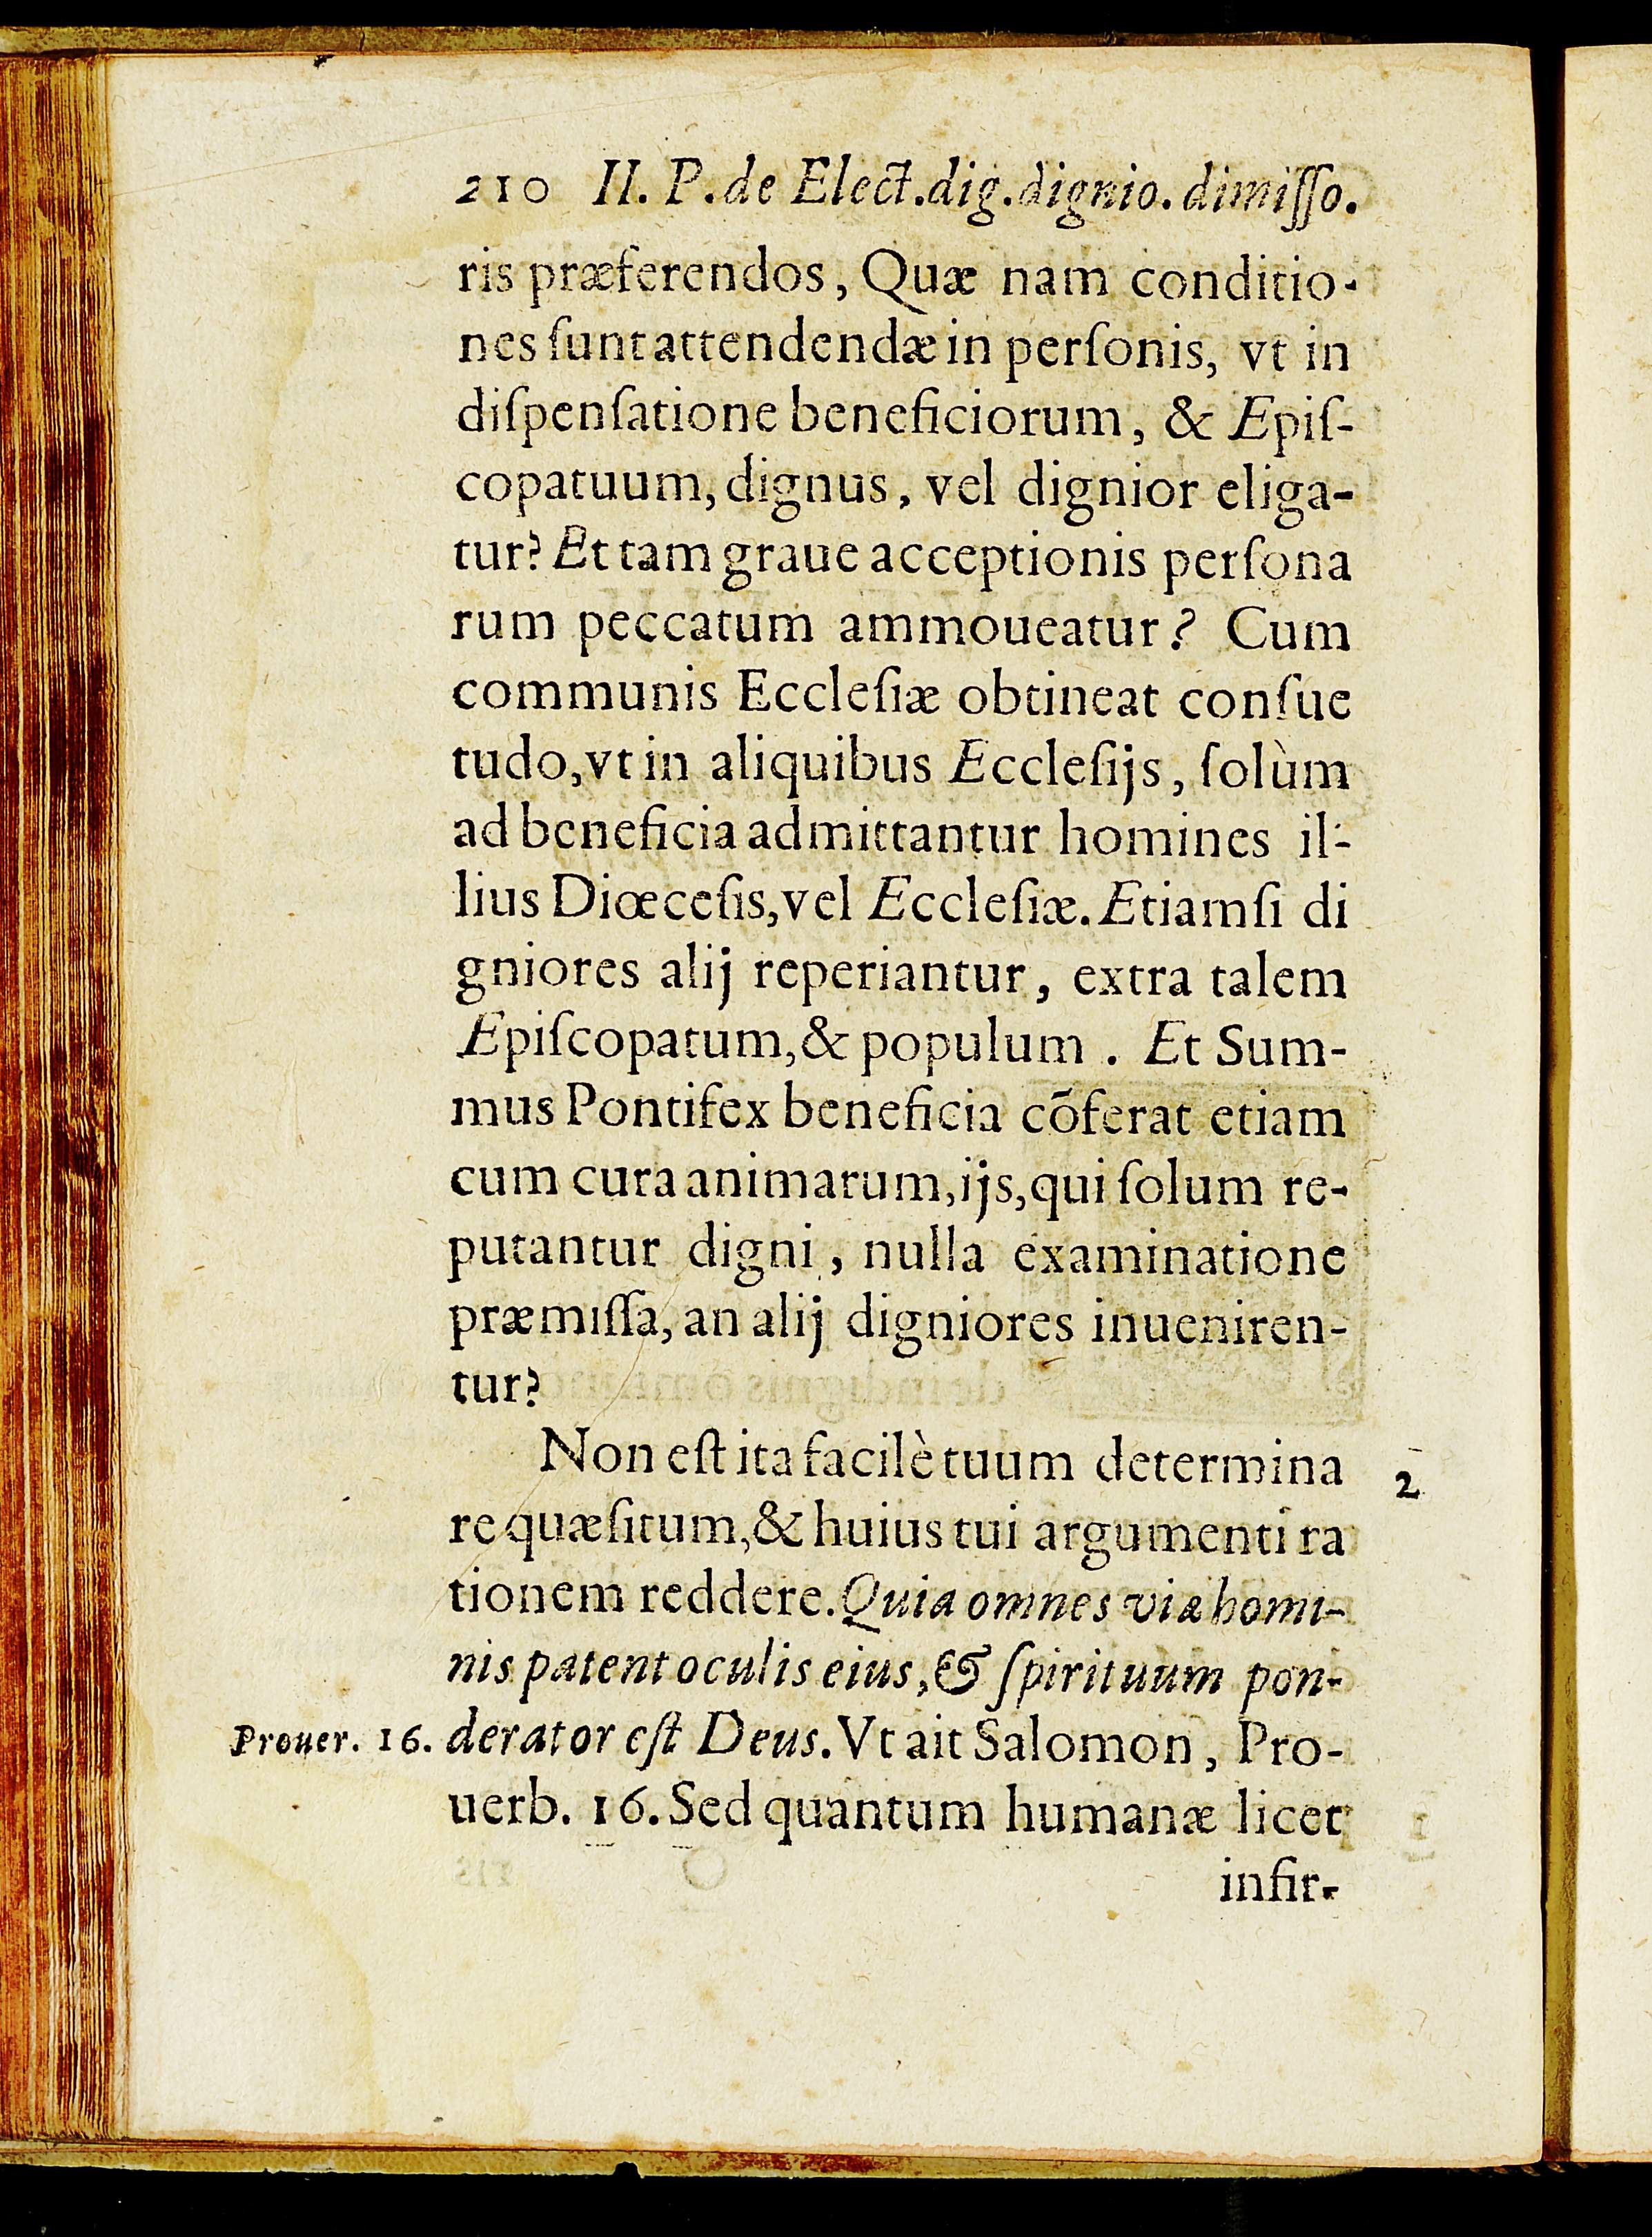 210 II. P. de Elect. dig. dignio. dimiſſo.
ris præferendos, Quæ nam conditio-
nes ſunt attendendæ in perſonis, vt in
diſpenſatione beneficiorum, & Epiſ-
copatuum, dignus, vel dignior eliga-
tur? Et tam graue acceptionis perſona
rum peccatum ammoueatur? Cum
communis Eccleſiæ obtineat conſue
tudo, vt in aliquibus Eccleſijs, ſolùm
ad beneficia admittantur homines il-
lius Diœceſis, vel Eccleſiæ. Etiamſi di
gniores alij reperiantur, extra talem
Epiſcopatum, & populum. Et Sum-
mus Pontifex beneficia cōferat etiam
cum cura animarum, ijs, qui ſolum re-
putantur digni, nulla examinatione
præmiſſa, an alij digniores inueniren-
tur?
Non eſt ita facilè tuum determina
2
re quæſitum, & huius tui argumenti ra
tionem reddere. Quia omnes viæ homi-
nis patent oculis eius, & ſpirituum pon-
Prouer. 16.
derator eſt Deus. Vt ait Salomon, Pro-
uerb. 16. Sed quantum humanæ licet
infir-